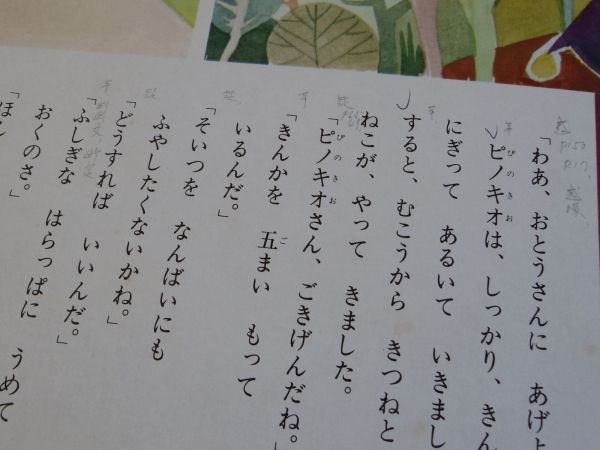 「わあ、おとうさんに　あげよ
ピノキオは、しっかり、きん
にぎって　あるいて　いきまし
すると、むこうから　きつねと
ねこが、やって　きました。
「ピノキオさん、ごきげんだね。
「きんかを　五まい　もって
いるんだ。」
「そいつを　なんばいにも
ふやしたくないかね。」
「どうすれば　いいんだ。」
「ふしぎな　はらっぱに　うめて
おくのさ。」
「ほん